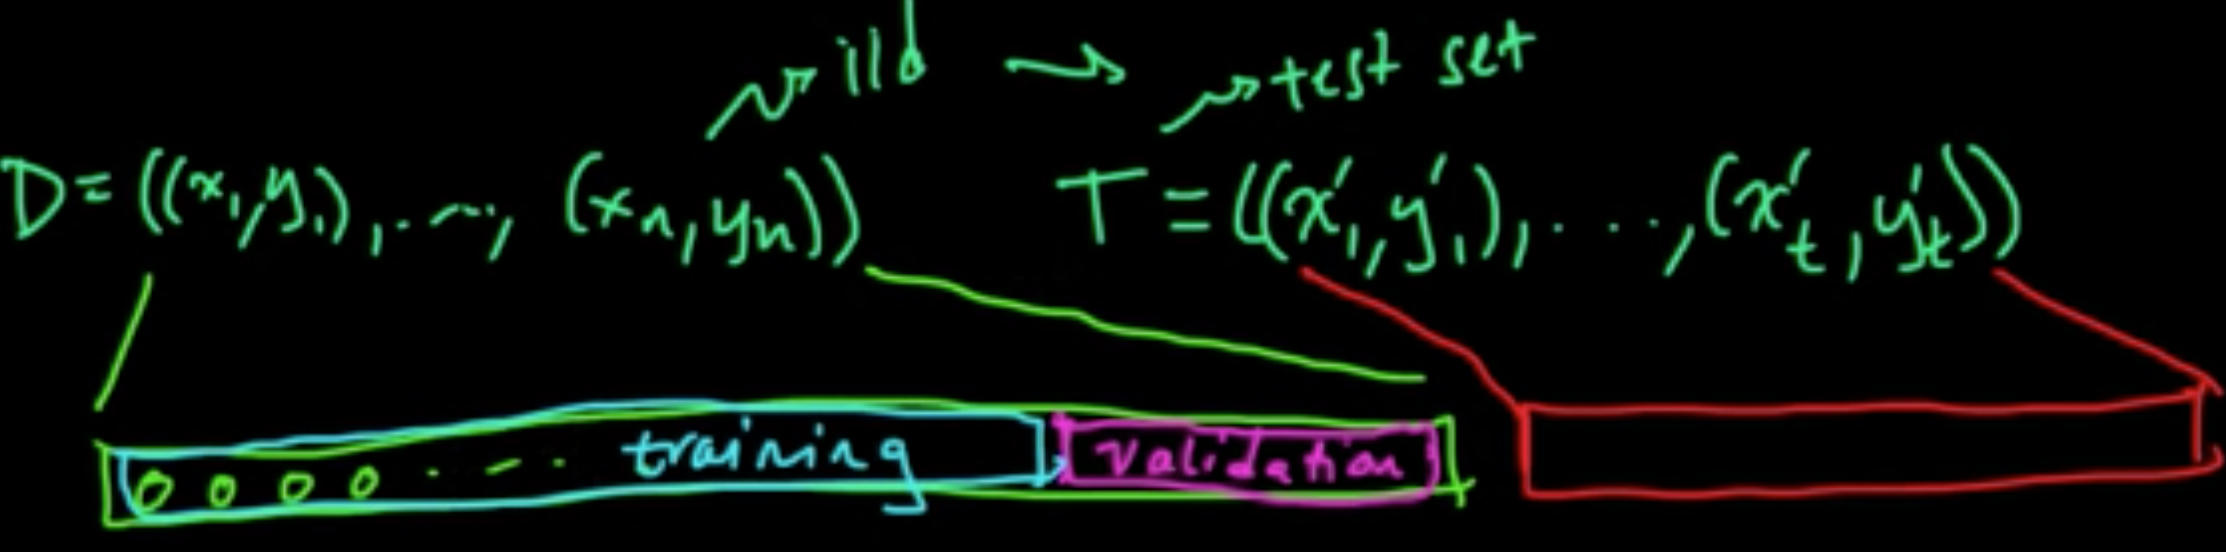 iid test set
D = ((x₁,y₁),...., (xₙ,yₙ)) T = ((x'₁,y'₁),....,(x'ₜ,y'ₜ))
0 0 0 0 . - - . training validation